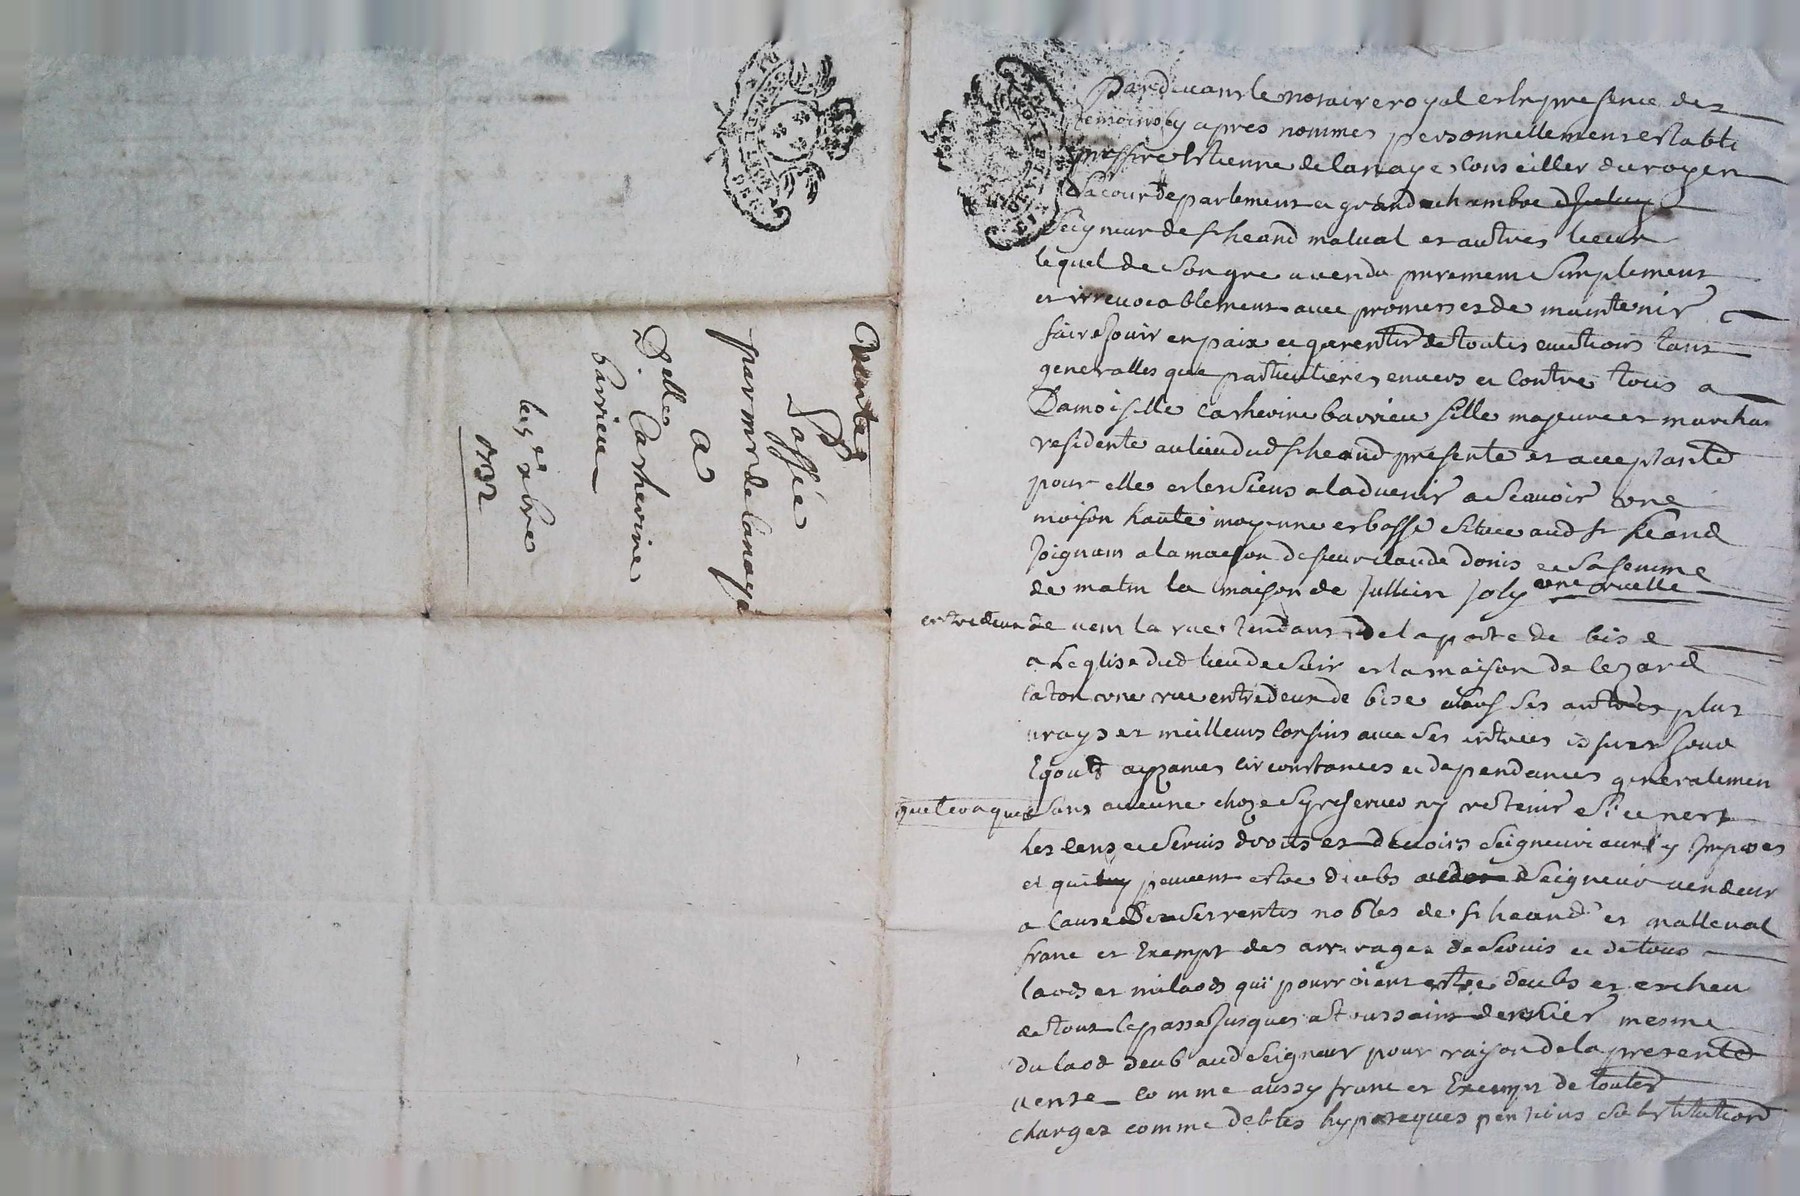 Vente
passée
par mr de lanaye
a
Delle Catherine
barrieu
le 5e xbre
1732
Pardevant le notaire royal et en presence des
temoins cy apres nommes personnellement estably
messire Estienne de lanaye Conseiller du roy en
sa cour de parlement a grand chambre
seigneur de st heand malval et autres lieux
lequel de son gre a vendu purement simplement
et irrevocablement avec promesses de maintenir
faire jouir en paix et garentir de toutes evictions tant
generalles que particulieres envers et contre tous a
Damoiselle Catherine barrieu fille majeure et marchan
residente au lieu dud st heand presente et acceptante
pour elle et les siens a ladvenir a scavoir une
maison haute moyenne et basse située aud st heand
joignant a la maison de sieur claude donis et sa femme
de matin la maison de Jullien Joly une ruelle
entredeux de vent la rue tendant de la porte de bise
a Leglise dud lieu de soir et la maison de
une rue entredeux de bise sauf ses autres plus
vrays et meilleurs confins avec ses entrées issues
Egouts aysances circonstances et dependances generalemen
quelconques sans aucune choze sy reserver ny retenir si ce nest
les cens et servis droits et devoirs seigneuriaux y Imposes
et qui peuvent estre deubs seigneur vendeur
a cause de ses rentes nobles de st heand et malleval
franc et Exempt des arrerages de servis et de tous
laods et milaods qui pourroient estre deubs et escheu
de tout le passe jusques a toussaint dernier mesme
du laod deub aud seigneur pour raison de la presente
vente comme aussy franc et Exempt de toutes
charges comme debtes hypoteques pensions substitutions